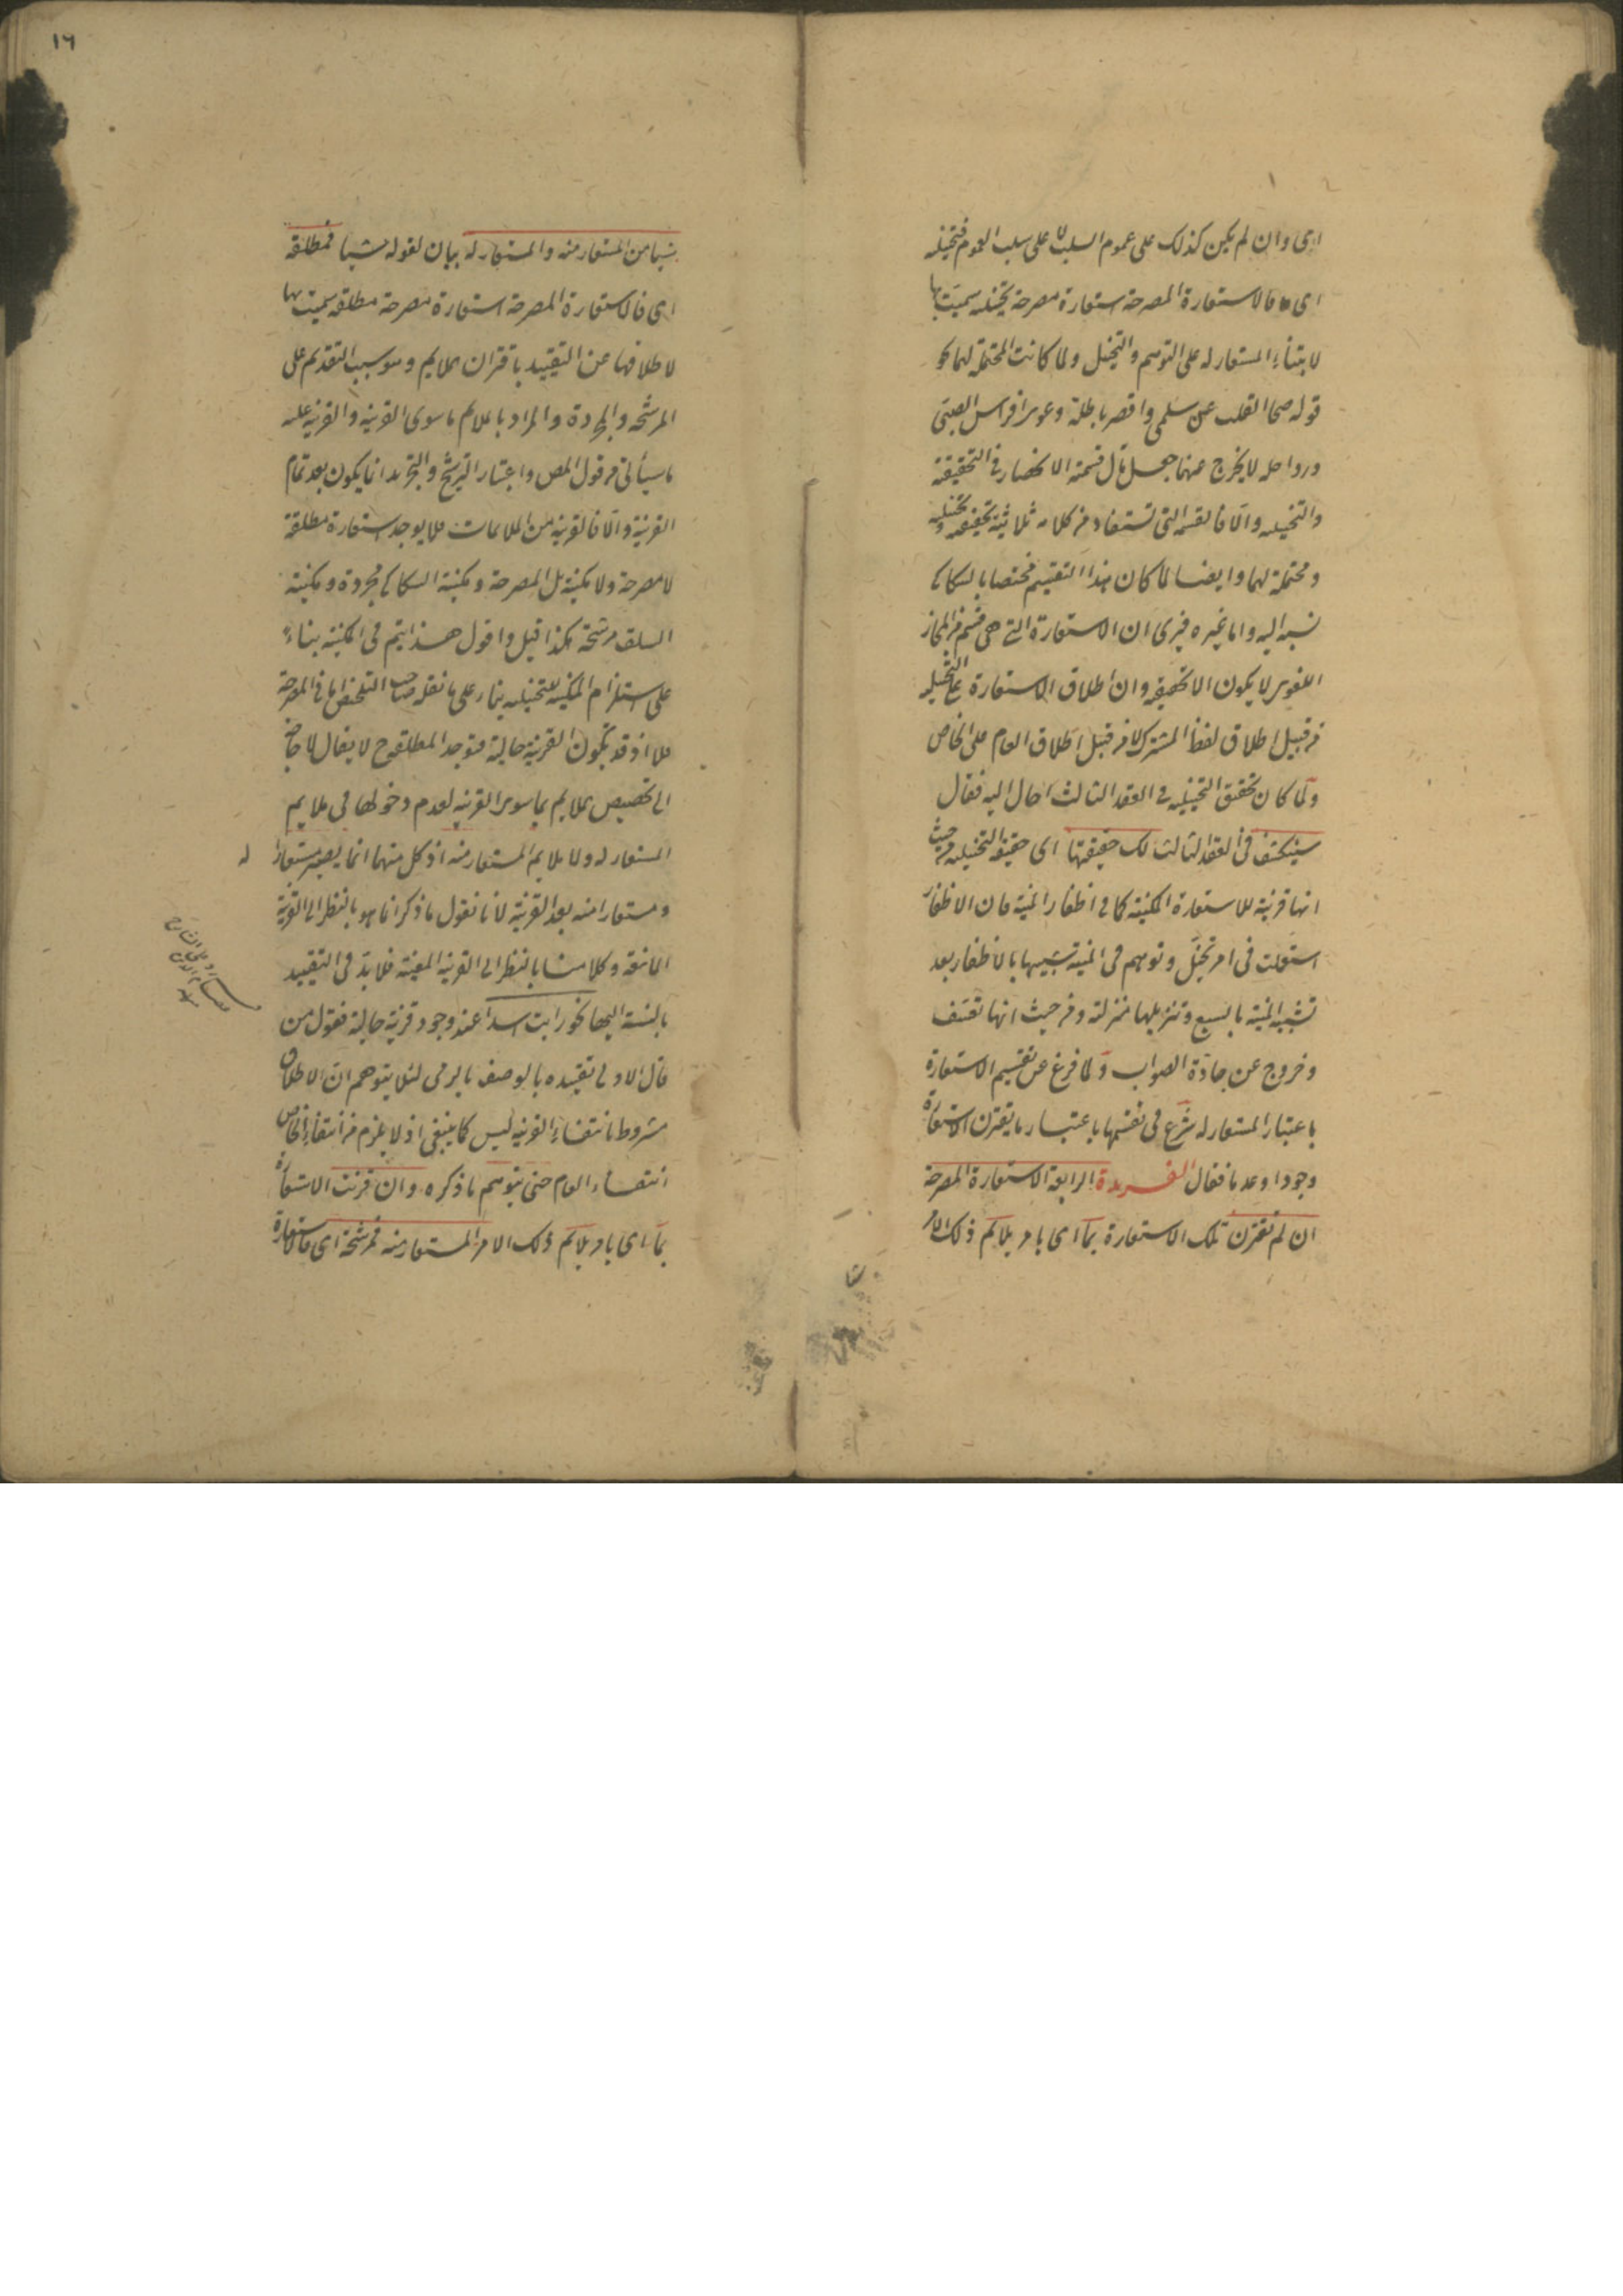 اى وان لم يكن كذلك على عموم السلب لا على سلب العموم فتخيلية
اى فالاستعارة المصرحة استعارة مصرحة تخييلية سميت بها
لابتناء المستعار له على التوهم والتخيل ولما كانت المحتملة لهما كما فى
قوله صحا القلب عن سلمى واقصر باطله وعرى افراس الصبى
ورواحله لا يخرج عنهما جعل مآل قسمته الانحصار فى التحقيقية
والتخييلية والا فالقسمة التى تستفاد من كلامه ثلاثية تحقيقية وتخييلية
ومحتملة لهما وايضا لما كان هذا التقسيم مختصا بالسكاكى
نسبه اليه واما غيره فيرى ان الاستعارة التى هى قسم من المجاز
اللغوى لا يكون الا تحقيقية وان اطلاق الاستعارة على التخييلية
من قبيل اطلاق لفظ المشترك لا من قبيل اطلاق العام على الخاص
ولما كان تحقيق التخييلية فى العقد الثالث احال اليه فقال
سينكشف فى العقد الثالث لك حقيقتها اى حقيقة التخييلية من حيث
انها قرينة للاستعارة المكنية كما فى اظفار المنية فان الاظفار
استعملت فى امر تخيل وتوهم فى المنية تشبيها بالاظفار بعد
تشبيه المنية بالسبع وتنزيلها منزلته ومن حيث انها تعسف
وخروج عن جادة الصواب ولما فرغ عن تقسيم الاستعارة
باعتبار المستعار له شرع فى تقسيمها باعتبار ما يقترن الاستعارة
وجودا وعدما فقال الفريدة الرابعة الاستعارة المصرحة
ان لم تقترن تلك الاستعارة بما اى بامر يلائم ذلك الامر
١٦
شيئا من المستعار منه والمستعار له بيان لقوله شيئا فمطلقة
اى فالاستعارة المصرحة استعارة مصرحة مطلقة سميت بها
لاطلاقها عن التقييد باقتران الملايم وهو سبب التقديم على
المرشحة والمجردة والمراد بالملايم ما سوى القرينة والقرينة عليه
ما سيأتى من قول المص واعتبار الترشيح والتجريد انما يكون بعد تمام
القرينة والا فالقرينة من الملايمات فلا يوجد استعارة مطلقة
لا مصرحة ولا مكنية بل المصرحة ومكنية السكاكى مجردة ومكنية
السلف مرشحة هكذا قيل واقول هذا يتم فى المكنية بناء
على استلزام المكنية للتخييلية بناء على ما نقله صاحب التلخيص اما فى المصرحة
فلا اذ قد تكون القرينة حالية فتوجد المطلقة ح لا يقال لا حاجة
الى تخصيص الملايم بما سوى القرينة لعدم دخولها فى ملايم
المستعار له ولا ملايم المستعار منه اذ كل منهما انما يصير مستعارا له
ومستعارا منه بعد القرينة لانا نقول ما ذكر انما هو بالنظر الى القرينة
المانعة وكلامنا بالنظر الى القرينة المعينة فلا بد فى التقييد
بالنسبة اليها نحو رايت اسدا عند وجود قرينة حالية فقول من
قال الاولى تقييده بالوصف بالرمى لئلا يتوهم ان الاطلاق
مشروط بانتفاء القرينة ليس كما ينبغى اذ لا يلزم من انتفاء الخاص
انتفاء العام حتى يتوهم ما ذكره وان قرنت الاستعارة
بما اى بامر يلائم ذلك الامر المستعار منه فمرشحة اى فالاستعارة